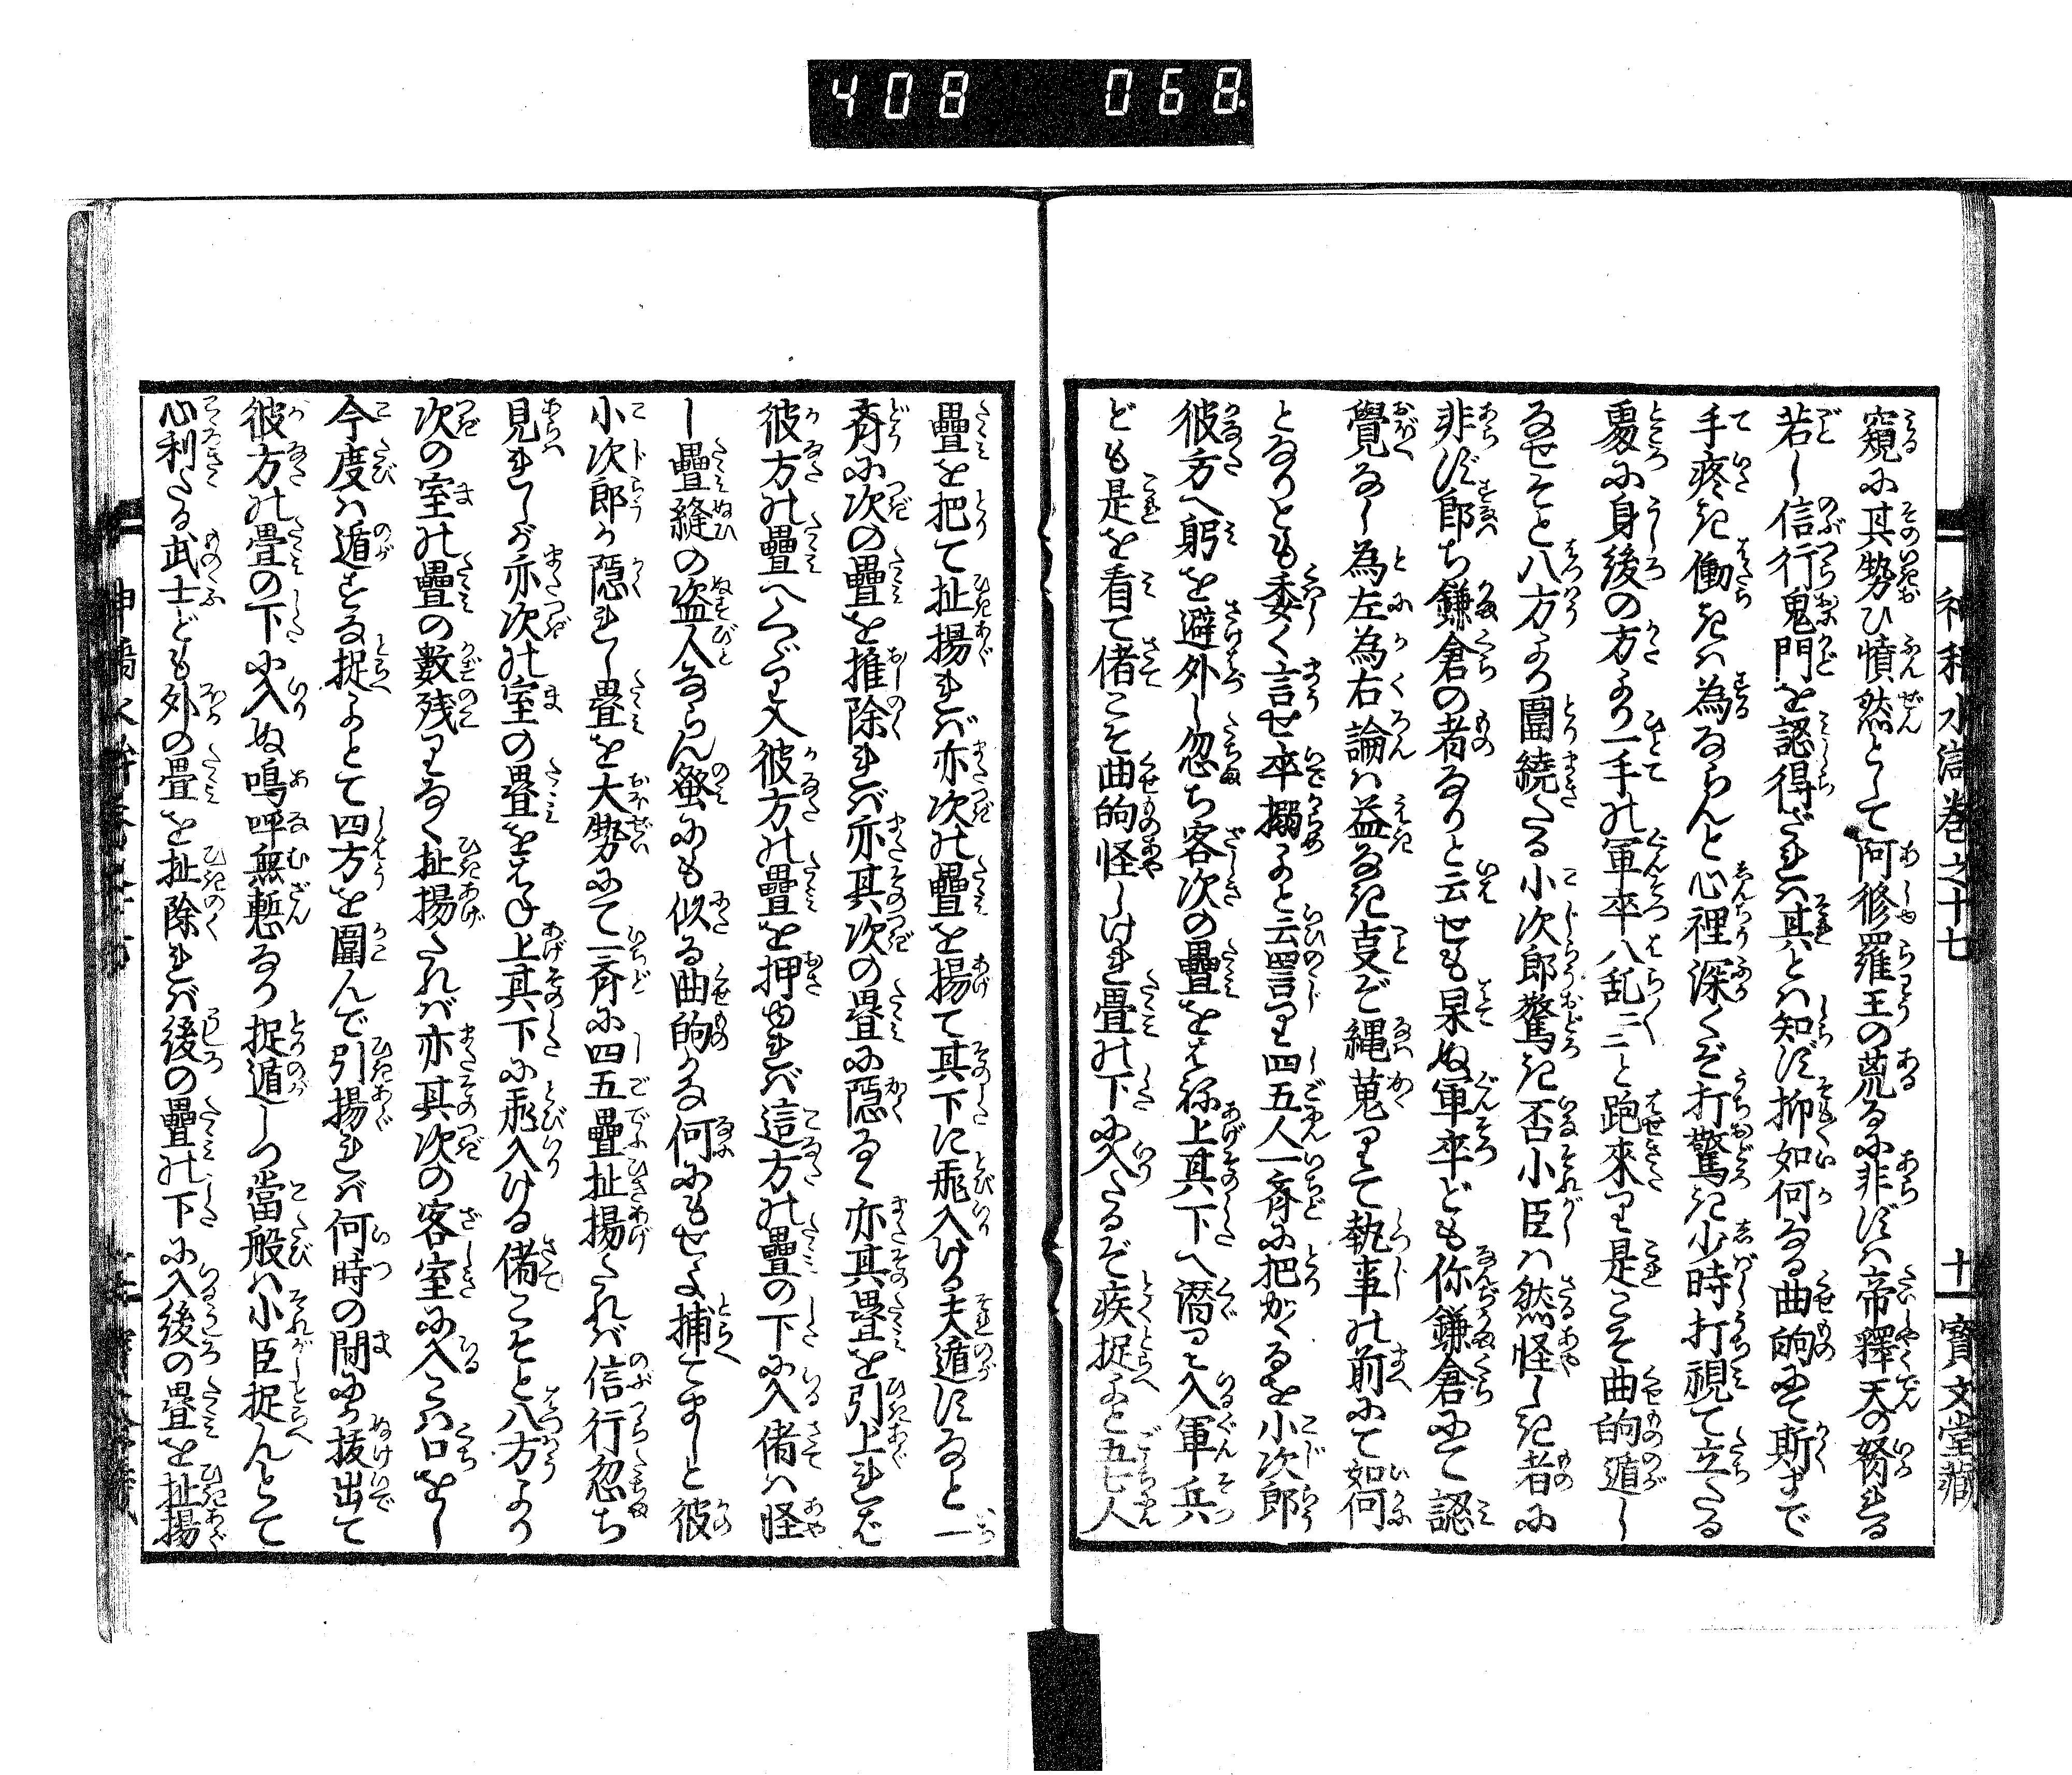 408 068
神稲水滸巻之十七 十一 寶文堂藏
窺に其勢ひ憤然として阿修羅王の荒るに非ずは帝釋天の努れる
若し信行鬼門を認得ざれは其とは知ず抑如何なる曲的にて斯まで
手疼き働きは為ならんと心裡深くぞ打驚き少時打視て立たる
處に身後の方より一手の軍卒八乱二二と跑來り是こそ曲的遁し
なせそと八方より圍繞たる小次郎驚き否小臣は然怪しき者に
非ず郎ち鎌倉の者なりと云せも杲ぬ軍卒ども你鎌倉にて認
覺なし為左為右論は益なき叓ぞ縄蒐りて執事の前にて如何
となりとも委く言せ卒搦よと云詈り四五人一斉に把かくるを小次郎
彼方へ躬を避外し忽ち客次の疊をはね上其下へ潜り入軍兵
ども是を看て偖こそ曲的怪しけれ畳の下に入たるぞ疾捉よと五七人
疊を把て扯揚れば亦次の疊を揚て其下に飛入ける夫遁すなと一
斉に次の疊を推除れば亦其次の畳に隠るゝ亦其畳を引上れば
彼方の疊へくゞり入彼方の疊を押ゆれば這方の疊の下に入偖は怪
し疊縫の盗人ならん蚤にも似る曲的かな何にもせよ捕てましと彼
小次郎が隠れし畳を大勢にて一斉に四五疊扯揚たれば信行忽ち
見れしが亦次の室の畳をはね上其下に飛入ける偖こそと八方より
次の室の疊の数残りなく扯揚たれば亦其次の客室に入こは口をし
今度は遁さる捉よとて四方を圍んで引揚れば何時の間にか抜出て
彼方の畳の下に入ぬ鳴呼無慙なり捉遁しつ當般は小臣捉んとて
心利たる武士ども外の畳を扯除れば後の疊の下に入後の畳を扯揚